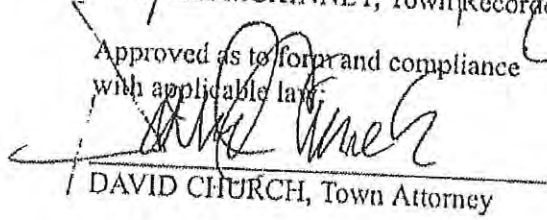 Town Recorde
Approved as to form and compliance
with applicable law:
DAVID CHURCH, Town Attorney